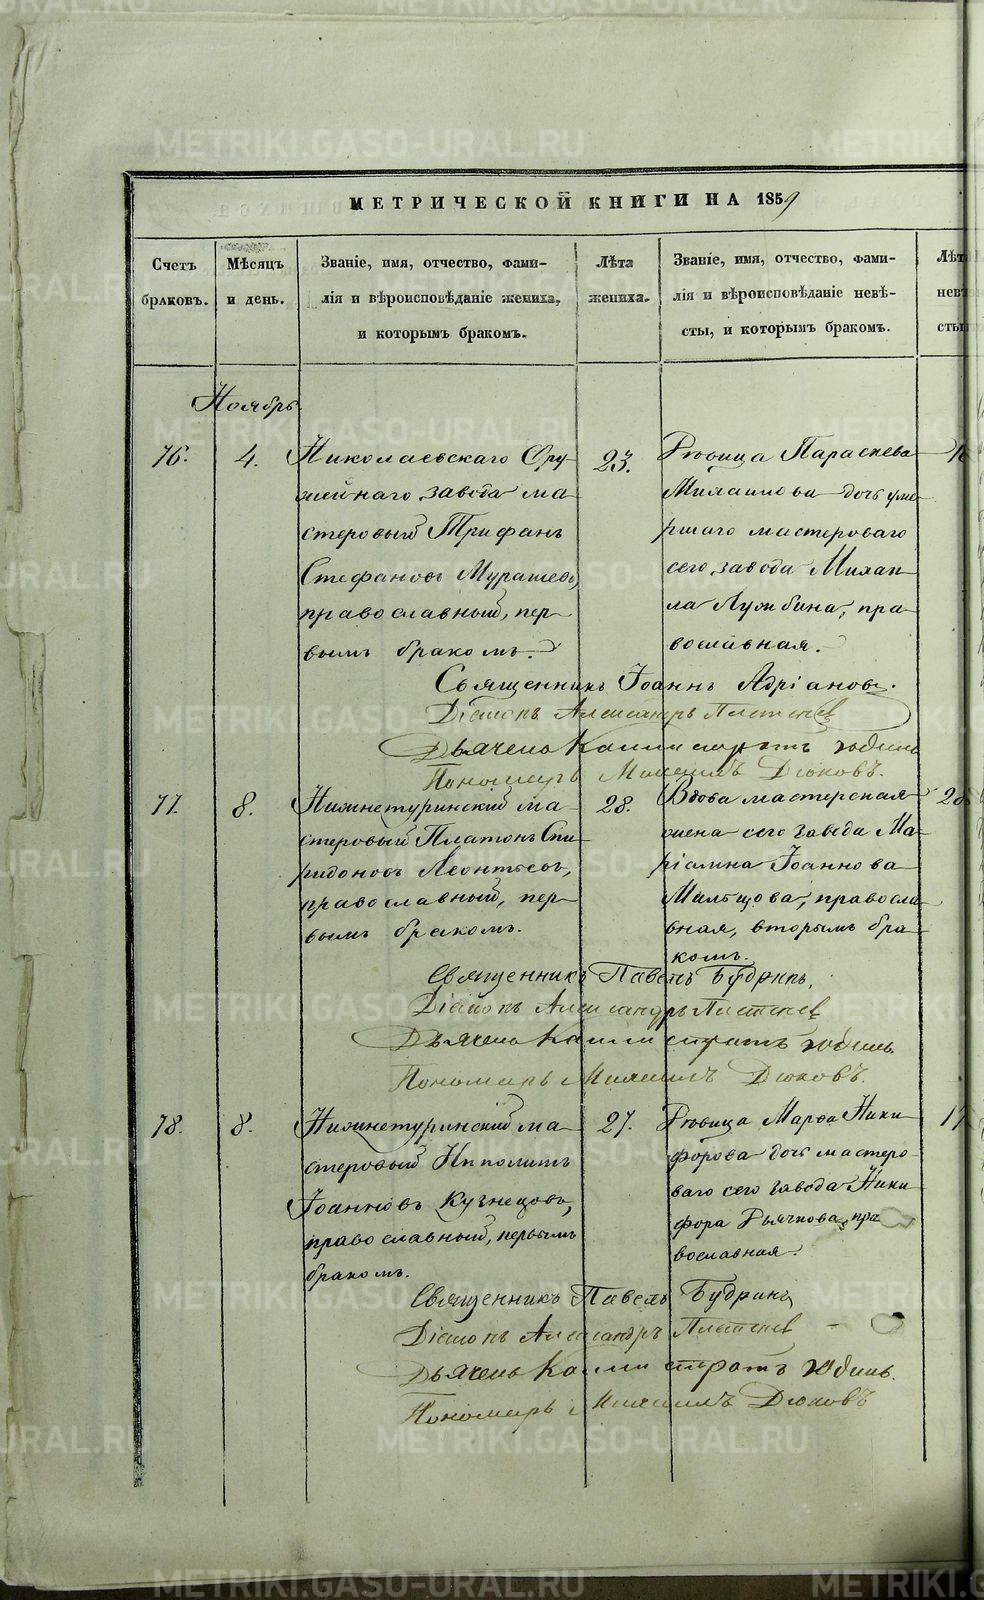 МЕТРИЧЕСКОЙ КНИГИ НА 1859
Счетъ браковъ.
Мѣсяцъ и день.
Званіе, имя, отчество, фами-
лія и вѣроисповѣданіе жениха,
и которымъ бракомъ.
Лѣта жениха.
Званіе, имя, отчество, фами-
лія и вѣроисповѣданіе невѣ-
сты, и которымъ бракомъ.
Лѣта
нев
сты
Ноябрь.
76.
4.
Николаевскаго Ору-
жейнаго завода ма-
стеровый Трифанъ
Стефановъ Мурашевъ,
православный, пер-
вымъ бракомъ.
23.
Дѣвица Параскева
Михаилова дочь уме-
ршаго мастероваго
сего завода Михаи-
ла Лужбина, пра-
вославная.
Священникъ Іоаннъ Адріановъ.
Діаконъ Александръ Плетенев
Дьячекъ Каллистратъ Юдинъ
Пономарь Михаилъ Дюковъ.
77.
8.
Нижнетуринскій ма-
стеровый Платонъ Спи-
ридоновъ Леонтьевъ,
православный, пер-
вымъ бракомъ.
28.
Вдова мастерская
жена сего завода Ма-
ріамна Іоаннова
Мальцова, правосла-
вная, вторымъ бра-
комъ.
28
Священникъ Павелъ Будринъ.
Діаконъ Александръ Плетенев
Дьячекъ Каллистратъ Юдинъ.
Пономарь Михаилъ Дюковъ.
78.
8.
Нижнетуринскій ма-
стеровый Ипполитъ
Іоанновъ Кузнецовъ,
православный, первымъ
бракомъ.
27.
Дѣвица Марѳа Ники-
форова дочь мастеро-
ваго сего завода Ники-
фора Рычкова, пра
вославная.
Священникъ Павелъ Будринъ
Діаконъ Александръ Плетенев
Дьячекъ Каллистратъ Юдинъ.
Пономарь Михаилъ Дюковъ
METRIKI.GASO-URAL.RU